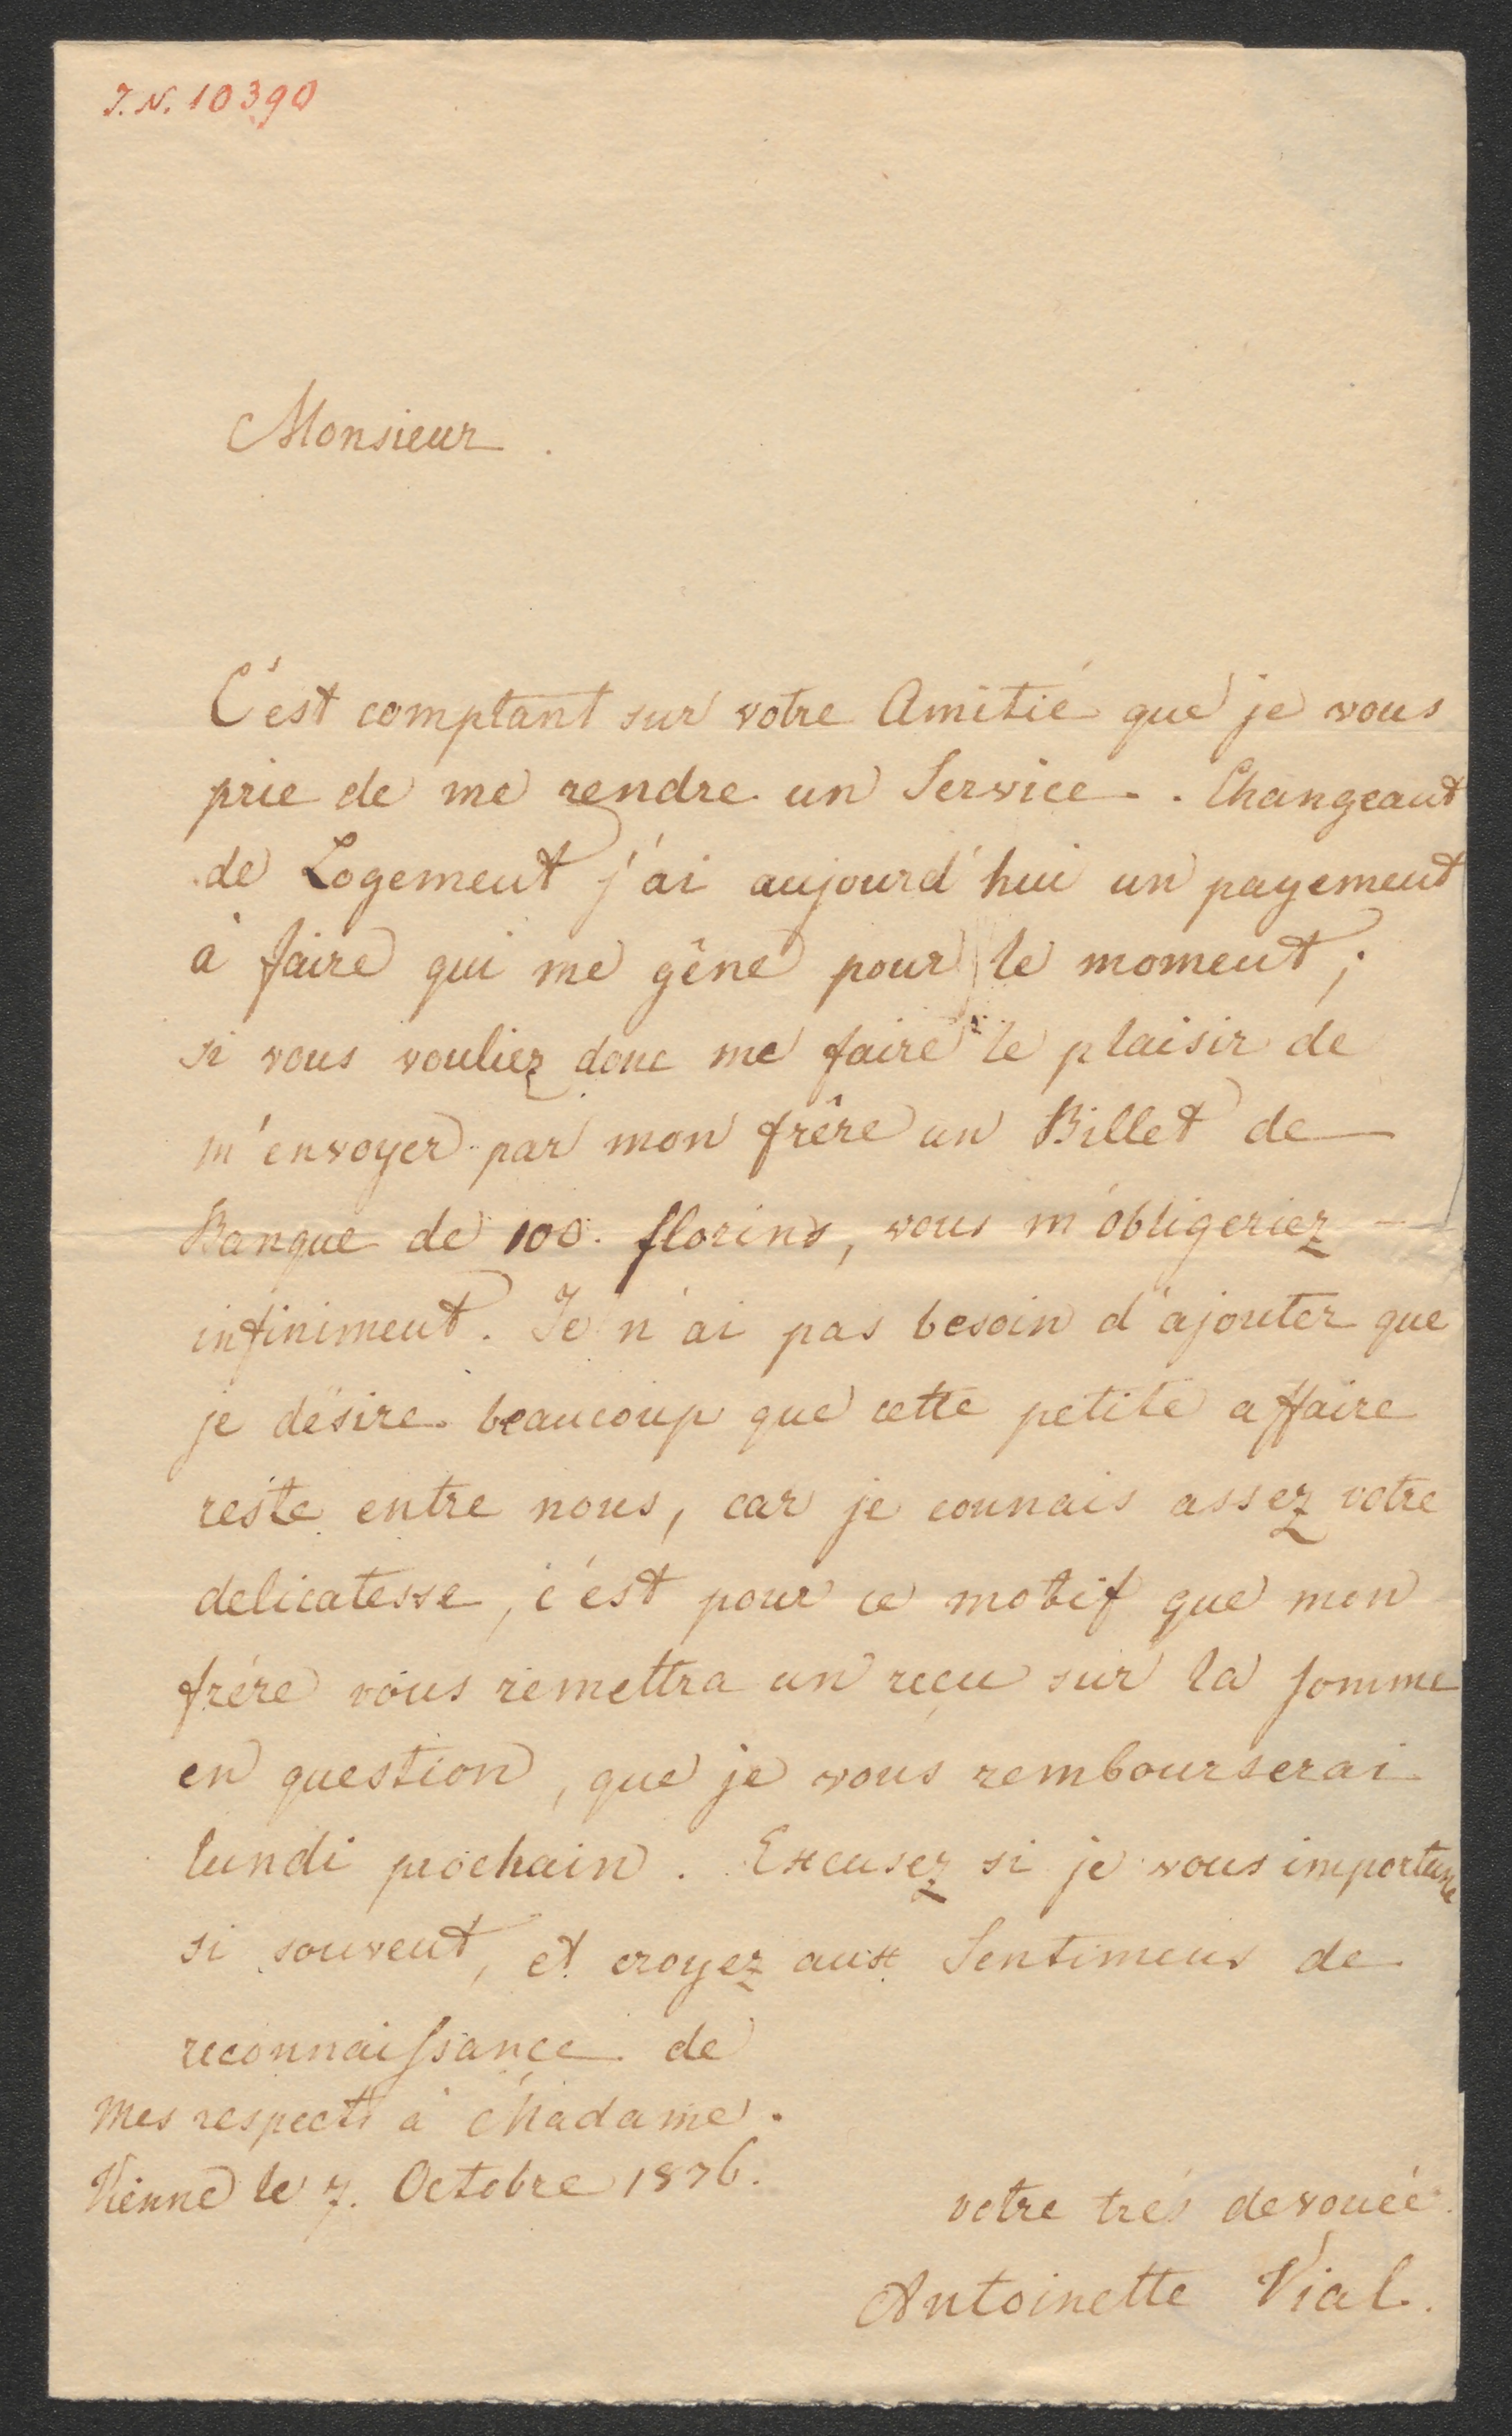 J. N. 10390
Monsieur.
C'est comptant sur votre Amitié que je vous
prie de me rendre un Service. . Changeant
de Logement j'ai aujourd'hui un payement
à faire qui me gêne pour le moment;
si vous vouliez donc me faire le plaisir de
m'envoyer par mon frêre un Billet de
Banque de 100. florins, vous m'obligeriez —
infiniment. Je n'ai pas besoin d'ajouter que
je désire beaucoup que cette petite affaire
reste entre nous, car je connais assez votre
delicatesse, c'est pour ce motif que mon
frére vous remettra un reçu sur la somme
en question, que je vous rembourserai
lundi prochain. Excusez si je vous importune
si souvent, et croyez aux Sentimens de
reconnaissance de
Mes respects à Madame.
Vienne le 7. Octobre 1836.
votre trés devouée
Antoinette Vial.